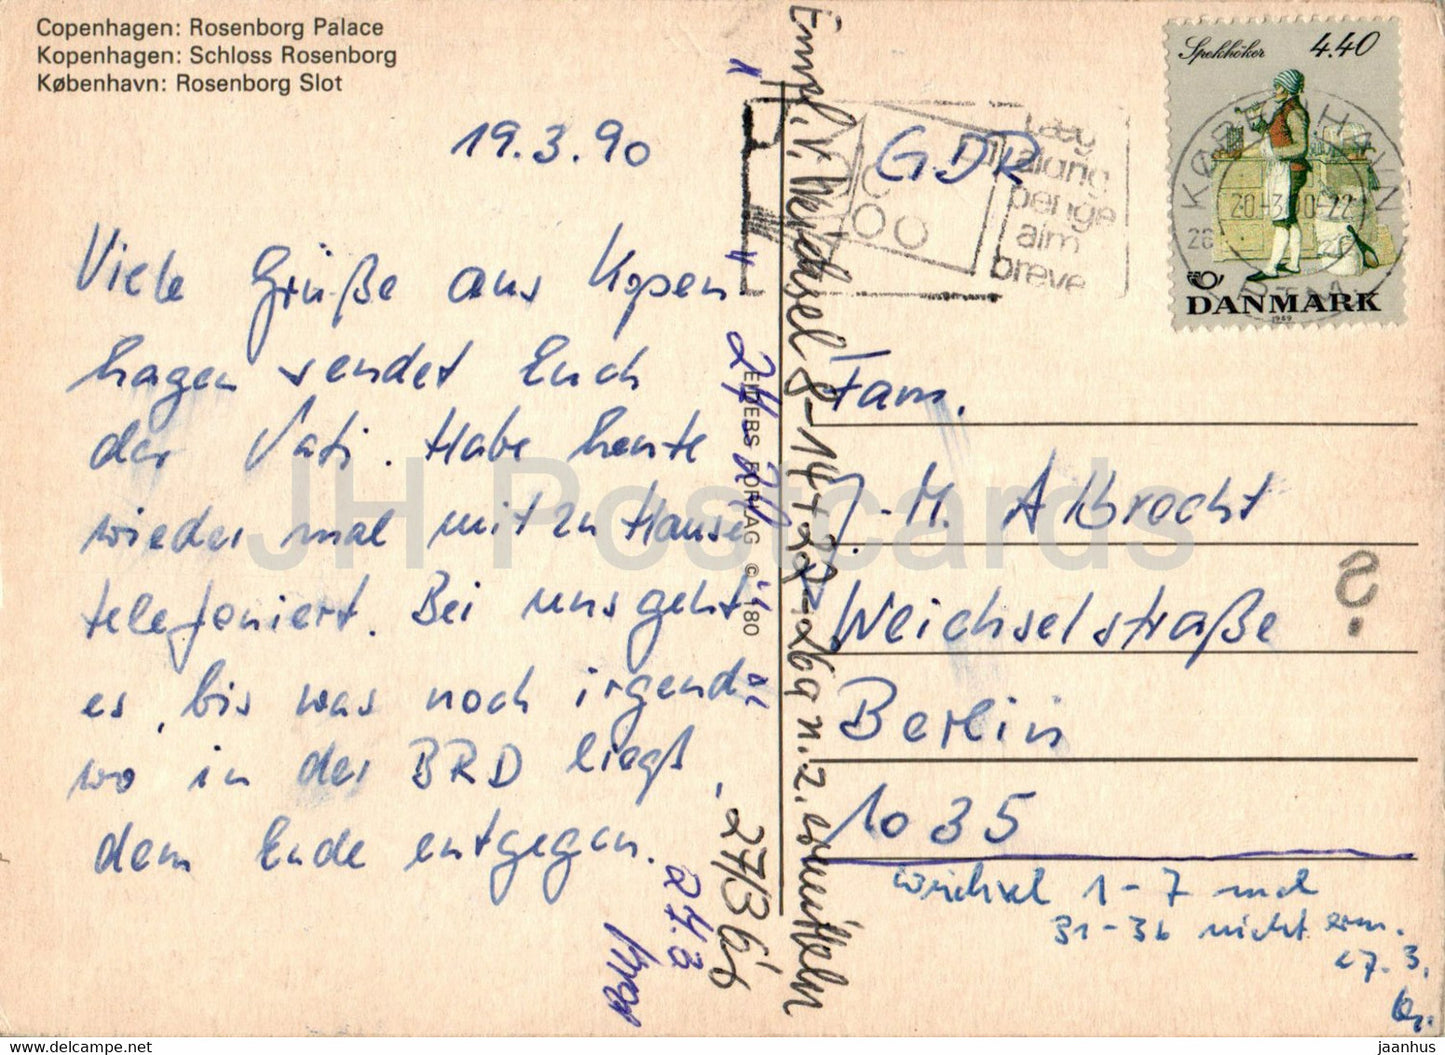 Copenhagen: Rosenborg Palace
Kopenhagen: Schloss Rosenborg
København: Rosenborg Slot
19.3.90
Viele Grüße aus Kopen
hagen sendet Euch
der Vati. Habe heute
wieder mal mit zu Hause
telefoniert. Bei uns geht
es, bis was noch irgend
wo in der BRD liegt,
dem Ende entgegen.
EIDERS FORLAG © 180
Empf. v. Weichsel 8-14 + 22-26a n. z. ermitteln
27/3 66
24.3
GDR
læg
aldrig
penge
i
alm
breve
Spekhöker 4.40
KØBENHAVN
DANMARK
1989
Fam.
J.-M. Albrecht
Weichselstraße
Berlin
1035
?
Weichsel 1-7 und
31-36 nicht erm.
27.3.
JH Postcards
www.delcampe.net
jaanhus